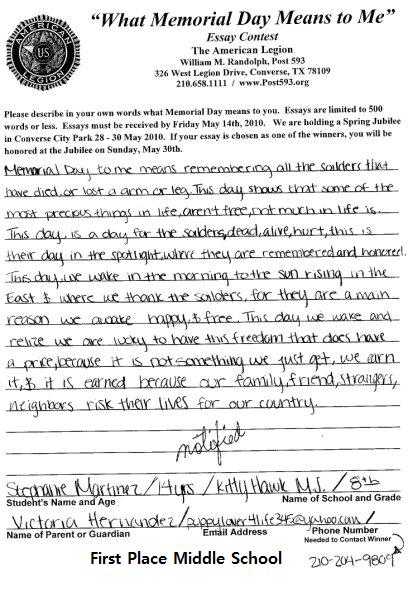 AMERICAN
US
LEGION
"What Memorial Day Means to Me"
Essay Contest
The American Legion
William M. Randolph, Post 593
326 West Legion Drive, Converse, TX 78109
210.658.1111 / www.Post593.org
Please describe in your own words what Memorial Day means to you. Essays are limited to 500
words or less. Essays must be received by Friday May 14th, 2010. We are holding a Spring Jubilee
in Converse City Park 28 - 30 May 2010. If your essay is chosen as one of the winners, you will be
honored at the Jubilee on Sunday, May 30th.
Memorial Day to me means remembering all the soilders that
have died, or lost a arm or leg. This day shows that some of the
most precious things in life, aren't free, not much in life is.
This day, is a day for the soilders, dead, alive, hurt, this is
their day in the spotlight, where they are remembered and honored.
This day, we wake in the morning to the sun rising in the
East & where we thank the soilders, for they are a main
reason we awake happy, & free. This day we wake and
relize we are lucky to have this freedom that does have
a price, because it is not something we just get, we earn
it, & it is earned because our family, friend, strangers,
neighbors risk their lives for our country.
notified
Stephanie Martinez / 14 yrs / Kitty Hawk M.S. / 8th
Student's Name and Age Name of School and Grade
Victoria Hernandez / puppylover4life345@yahoo.com /
Name of Parent or Guardian Email Address Phone Number
Needed to Contact Winner
First Place Middle School 210-204-9809